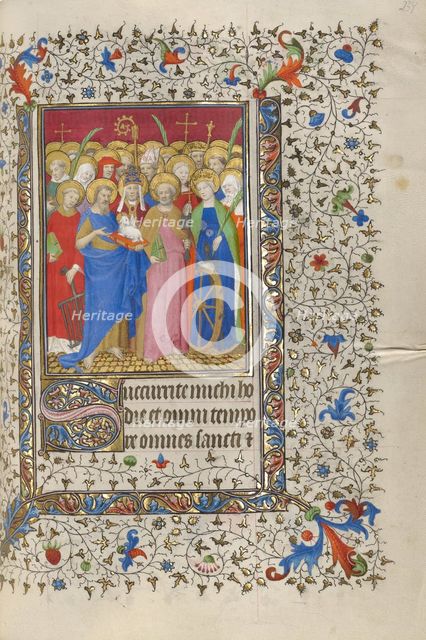 239
Heritage Heritage
Heritage Heritage
Heritage Heritage
Succurrite michi ho
die et omni tempo
re omnes sancti et